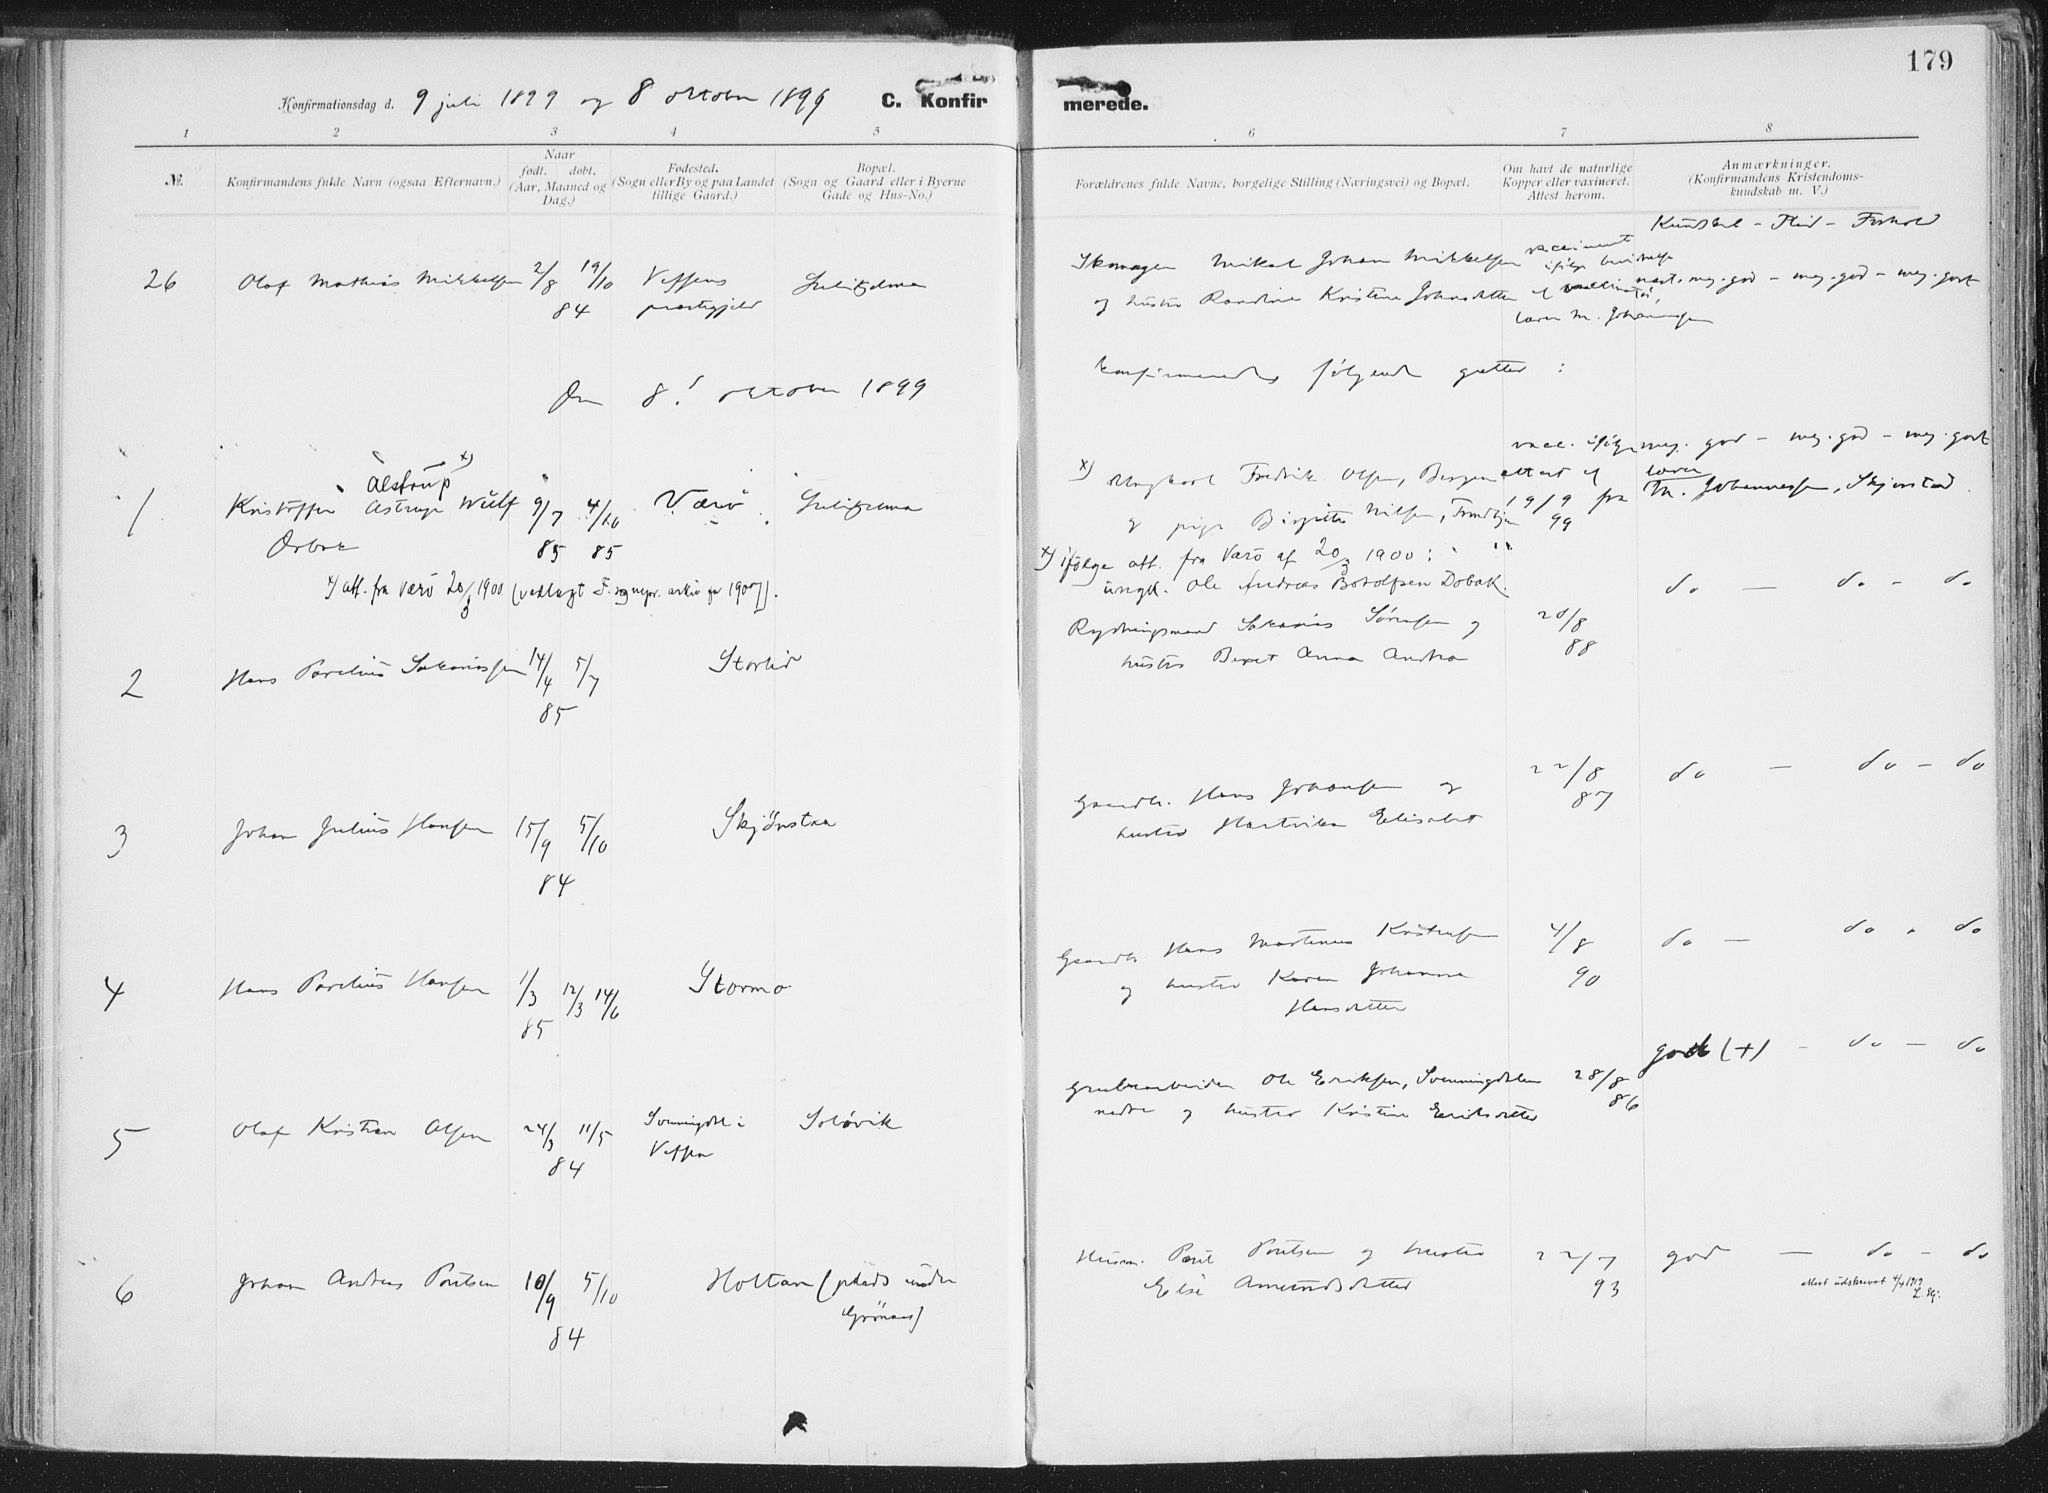 179
Konfirmationsdag d. 9 juli 1899 og 8 oktober 1899 C. Konfirmerede.
1 2 3 4 5 6 7 8
№ Konfirmandens fulde Navn (ogsaa Efternavn.) Naar født. døbt. (Aar, Maaned og Dag.) Fødested. (Sogn eller By og paa Landet tillige Gaard.) Bopæl. (Sogn og Gaard eller i Byerne Gade og Hus-No.) Forældrenes fulde Navne, borgelige Stilling (Næringsvei) og Bopæl. Om havt de naturlige Kopper eller vaxineret. Attest herom. Anmærkninger. (Konfirmandens Kristendomskundskab m. V.)
Kundskab - Flid - Forhold
26 Olaf Mathias Mikkelsen 2/8 19/10 84 Vefsens prestegjeld Sulitjelma
Skomager Mikal Johan Mikkelsen
og hustru Kristine
meg. god - meg. god - meg. godt
lærer M. Johannessen
Den 8. oktober 1899 konfirmeredes følgende gutter :
1 Kristoffer Astrup Wulf 9/7 4/10 Værö Sulitjelma
Alstrup x)
85 85
x) att. fra Værö 20/3 1900
x) Ungkarl Fredrik Olsen, Bergen
og pige Birgitte Nilsen,
vacc. ifølge attest af 19/9 99 fra lærer M. Johannessen, Skjerstad
meg. god - meg. god - meg. godt
x) ifølge att. fra Værö af 20/3 1900 :
ungk. Ole Andreas Botolfsen Dobak.
2 Hans Parelius Sakariassen 14/4 5/7 85 Storlid
Rydningsmand Sakarias Sørensen og
hustru Beret Anna Andrea
20/8 88 do - do - do
3 Johan Julius Hansen 15/9 5/10 84 Skjønstaa
Gaardbr. Hans Johansen og
hustru Hartvika Elisabet
22/8 87 do - do - do
4 Hans Parelius Hansen 1/3 12/3 14/6 85 Stormo
Gaardbr. Hans Martinus Kristensen
og hustru Karen Johanna
Hansdatter
4/8 90 do - do - do
5 Olaf Kristian Olsen 24/3 11/5 84 Svenningdal i Vefsen Soløvik
Grubearbeider Ole Eriksen, Svenningdalen
nedre og hustru Kristine Eriksdatter
28/8 86 godt (+) - do - do
6 Johan Andreas Poulsen 10/9 5/10 84 Holtan (plads under
Grönaas)
Husm. Paul Poulsen og hustru
Else Amundsdatter
22/7 93 god - do - do
Attest udskrevet 4/4 1919